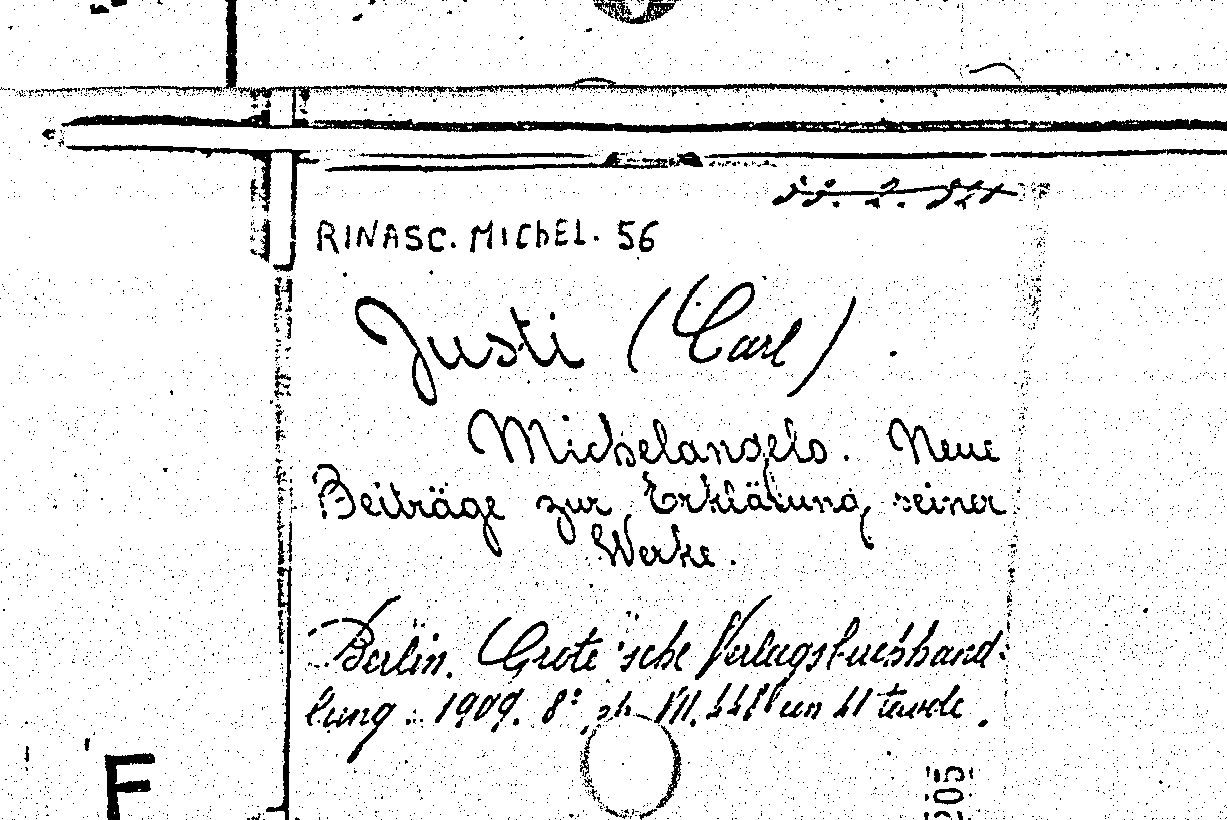 RINASC. MICHEL. 56
Justi (Carl).
Michelangelo. Neue
Beiträge zur Erklärung seiner
Werke.
Berlin. Grote'sche Verlagsbuchhand-
lung. 1909. 8° VIII. con tavole.
F
205